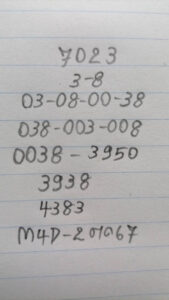 7023
3-8
03-08-00-38
038-003-008
0038-3950
3938
4383